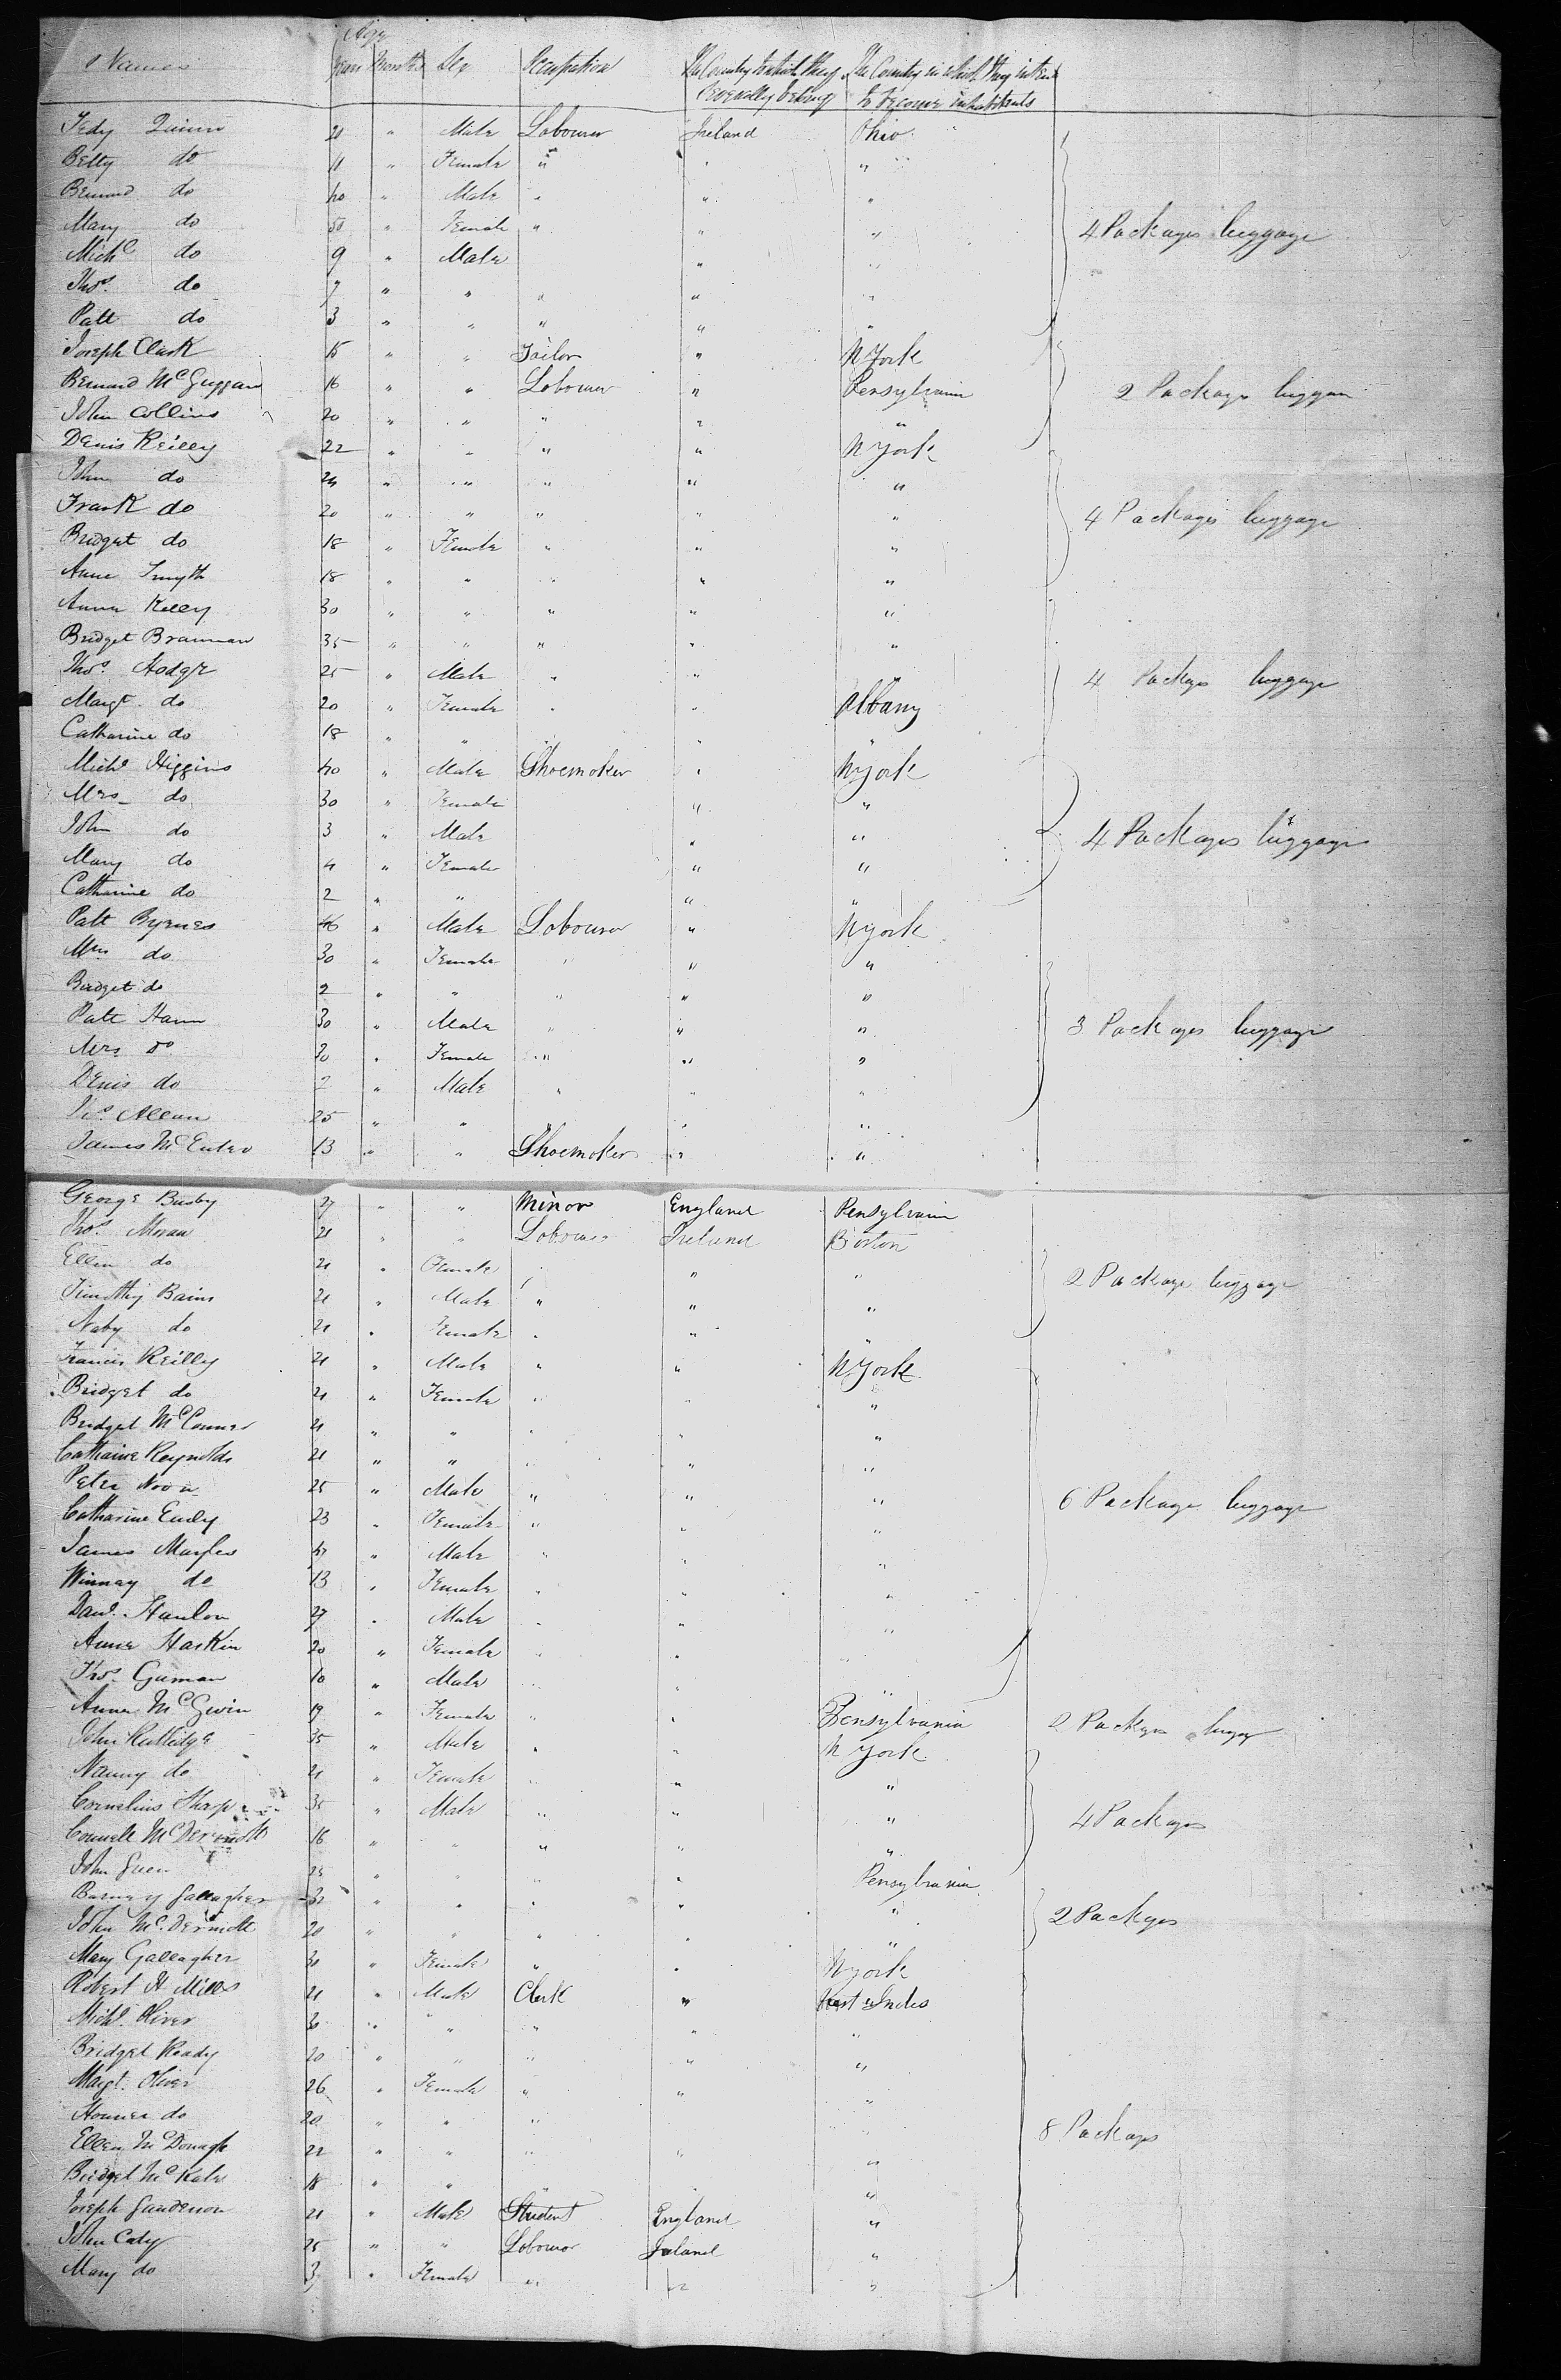 Names Age Years Months Sex Occupation The Country to which they severally belong The Country in which they intend to become inhabitants
Tedy Quinn 20 " Male Labourer Ireland Ohio
Betty do 11 " Female " " "
Bernard do 40 " Male " " "
Mary do 50 " Female " " " 4 Packages luggage
Michl do 9 " Male " "
Thos. do 7 " " " " "
Patt do 3 " " " " "
Joseph Clark 15 " " Tailor " N York
Bernard McGuggan 16 " " Labourer " Pensylvania 2 Package luggage
John Collins 20 " " " " "
Denis Reilly 22 " " " " N York
John do 24 " " " " "
Frank do 20 " " " " " 4 Packages luggage
Bridget do 18 " Female " " "
Anne Smyth 18 " " " " "
Anna Kelly 30 " " " " "
Bridget Brannan 35 " " " " "
Thos. Hodge 25 " Male " " " 4 Packags luggage
Margt. do 20 " Female " " Albany
Catharine do 18 " " " " "
Michl Higgins 40 " Male Shoemaker " N York
Mrs do 30 " Female " "
John do 3 " Male " " 4 Packages luggage
Mary do 4 " Female " "
Catharine do 2 " " " "
Patt Byrnes 46 " Male Labourer " N York
Mrs do 30 " Female " " "
Bridget do 2 " " " " "
Patt Hann 30 " Male " " " 3 Packages luggage
Mrs do 30 " Female " " "
Denis do 2 " Male " " "
Allan 25 " " " " "
James McEnter 13 " " Shoemaker " "
George Busby 27 " " Minor England Pensylvania
Thos. Moran 21 " " Labourer Ireland Boston
Ellen do 21 " Female " " " 2 Package luggage
Timothy Bains 21 " Male " " "
Naby do 21 " Female " " "
Francis Reilly 21 " Male " " N York
Bridget do 21 " Female " " "
Bridget McConner 21 " " " " "
Catharine Reynolds 21 " " " " "
Peter 25 " Male " " " 6 Package luggage
Catharine Eudy 23 " Female " " "
James " Male " " "
Winnay do 13 " Female " " "
Danl. Hanlon 27 " Male " " "
Anne Harkin 20 " Female " " "
Thos. Gaman 10 " Male " " "
Anna McGwin 19 " Female " " Pensylvania 2 Packges
John Rutledge 35 " Male " " N York
Nanny do 21 " Female " " "
Cornelius Sharp 35 " Male " " " 4 Packages
Connell McDermott 16 " " " " "
John 25 " " " " Pensylvania
Barney Gallagher 32 " " " " " 2 Packges
John McDermott 20 " " " " "
Mary Gallagher 30 " Female " " N York
Robert H Mills 21 " Male Clerk " West Indes
Michl. Oliver 30 " " " " "
Bridget Ready 20 " " " " "
Margt. Oliver 26 " Female " " "
do 20 " " " " "
Ellen McDonagh 22 " " " " " 8 Packags
Bridget McKale 18 " " " " "
Joseph Sanderson 21 " Male Student England "
John Cady 25 " " Labourer Ireland "
Mary do 3 " Female " " "